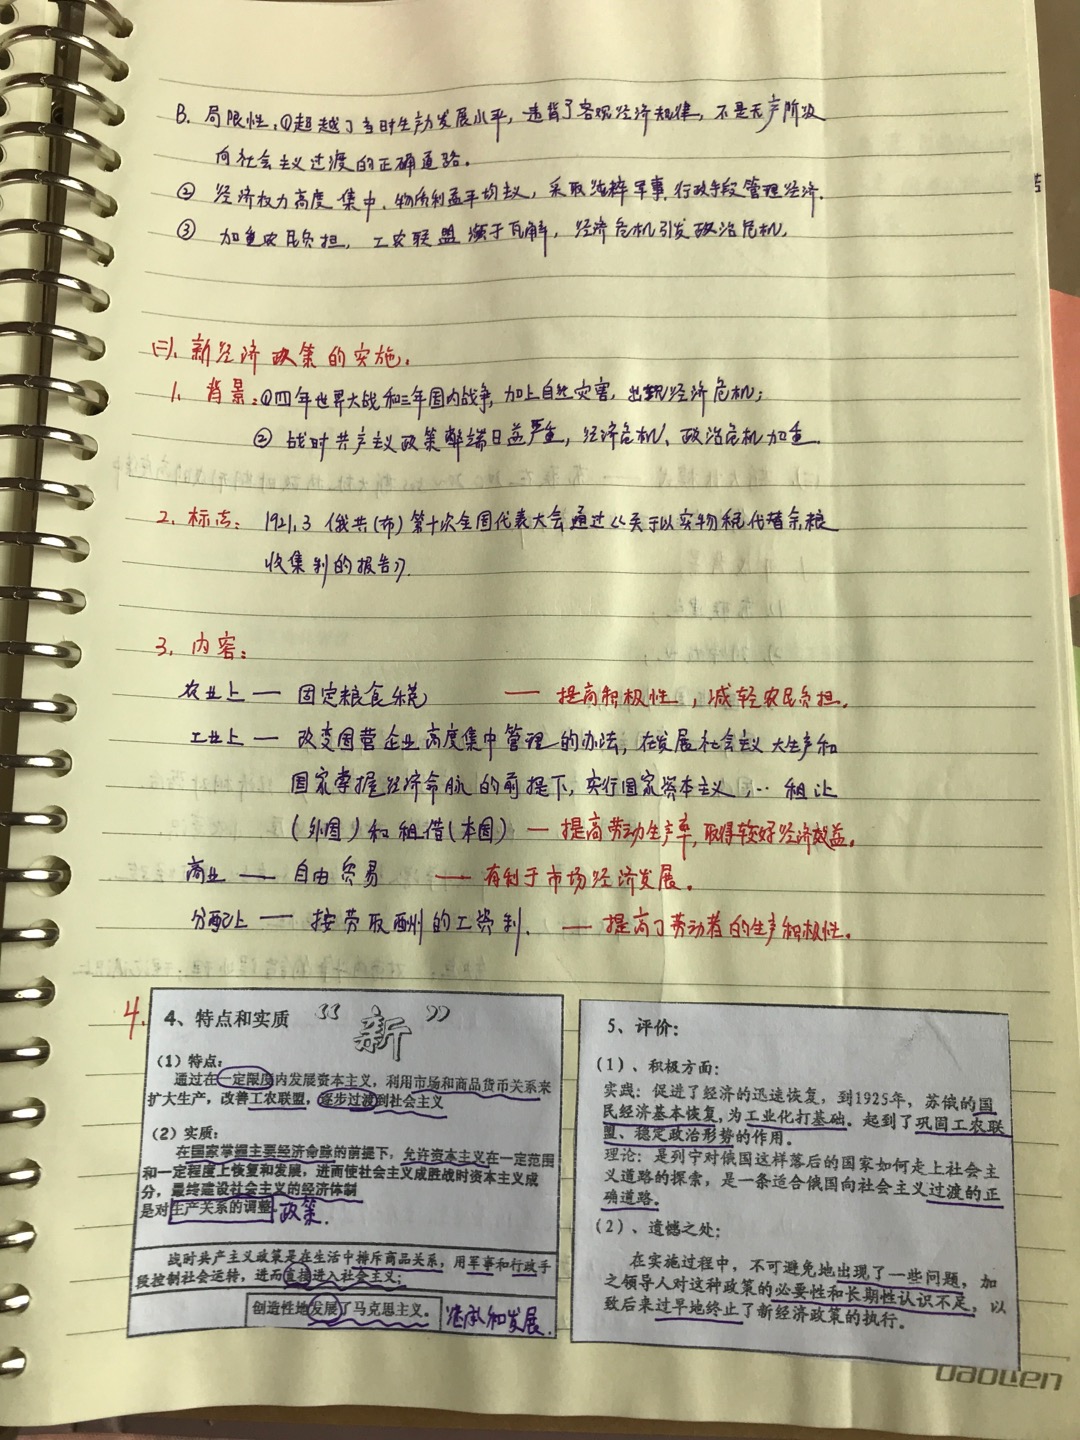 B. 局限性:①超越了当时生产力发展水平，违背了客观经济规律，不是无产阶级
向社会主义过渡的正确道路。
② 经济权力高度集中，物质利益平均主义，采取纯粹军事、行政手段管理经济.
③ 加重农民负担，工农联盟濒于瓦解，经济危机引发政治危机.
(二)、新经济政策的实施.
1. 背景:①四年世界大战和三年国内战争，加上自然灾害，出现经济危机;
② 战时共产主义政策弊端日益严重，经济危机、政治危机加重.
2. 标志: 1921.3 俄共(布)第十次全国代表大会通过《关于以实物税代替余粮
收集制的报告》.
3. 内容:
农业上 — 固定粮食税 — 提高积极性，减轻农民负担.
工业上 — 改变国营企业高度集中管理的办法，在发展社会主义大生产和
国家掌握经济命脉的前提下，实行国家资本主义 ... 租让
(外国) 和租借(本国) — 提高劳动生产率，取得较好经济效益.
商业 — 自由贸易 — 有利于市场经济发展.
分配上 — 按劳取酬的工资制. — 提高了劳动者的生产积极性.
4.
4、特点和实质 “新”
(1) 特点:
通过在一定限度内发展资本主义，利用市场和商品货币关系来
扩大生产，改善工农联盟，逐步过渡到社会主义
(2) 实质:
在国家掌握主要经济命脉的前提下，允许资本主义在一定范围
和一定程度上恢复和发展，进而使社会主义成胜战时资本主义成
分，最终建设社会主义的经济体制
是对生产关系的调整. 政策.
战时共产主义政策是在生活中排斥商品关系，用军事和行政手
段控制社会运转，进而直接进入社会主义;
创造性地发展了马克思主义。 继承和发展.
5、评价:
(1)、积极方面:
实践: 促进了经济的迅速恢复，到1925年，苏俄的国
民经济基本恢复，为工业化打基础。起到了巩固工农联
盟、稳定政治形势的作用。
理论: 是列宁对俄国这样落后的国家如何走上社会主
义道路的探索，是一条适合俄国向社会主义过渡的正
确道路.
(2)、遗憾之处:
在实施过程中，不可避免地出现了一些问题，加
之领导人对这种政策的必要性和长期性认识不足，以
致后来过早地终止了新经济政策的执行。